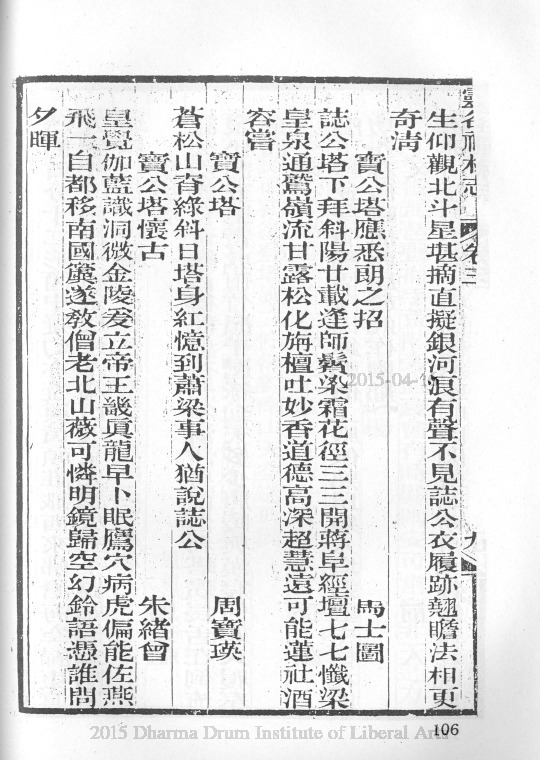 靈谷禪林志 卷三 九
生仰觀北斗星堪摘直擬銀河浪有聲不見誌公衣履跡翹瞻法相更
奇淸
寶公塔應悉朗之招 馬士圖
誌公塔下拜斜陽廿載逢師鬢染霜花徑三三開蔣阜經壇七七懺梁
皇泉通鷲嶺流甘露松化旃檀吐妙香道德高深超慧遠可能蓮社酒
容嘗
寶公塔 周寶瑛
蒼松山脊綠斜日塔身紅憶到蕭梁事人猶說誌公
寶公塔懷古 朱緒曾
皇覺伽藍識洞微金陵爰立帝王畿眞龍早卜眠鷹穴病虎偏能佐燕
飛一自都移南國簴遂敎僧老北山薇可憐明鏡歸空幻鈴語憑誰問
夕暉
2015-04-
106
2015 Dharma Drum Institute of Liberal Arts